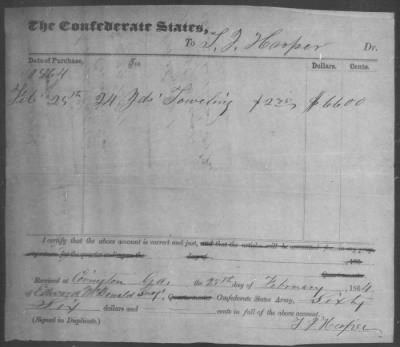 The Confederate States,
To T. J. Hooper Dr.
Date of Purchase. To Dollars. Cents.
1864
Feby 25th 24 Yds Toweling $2.75 $66 00
I certify that the above account is correct and just, and that the articles will be accounted for
Received at Covington Ga, the 25th of February, 1864,
of Edward McDonald Surg. Quartermaster Confederate States Army, Sixty
Six dollars and cents in full of the above account.
(Signed in Duplicate.) T. J. Hooper